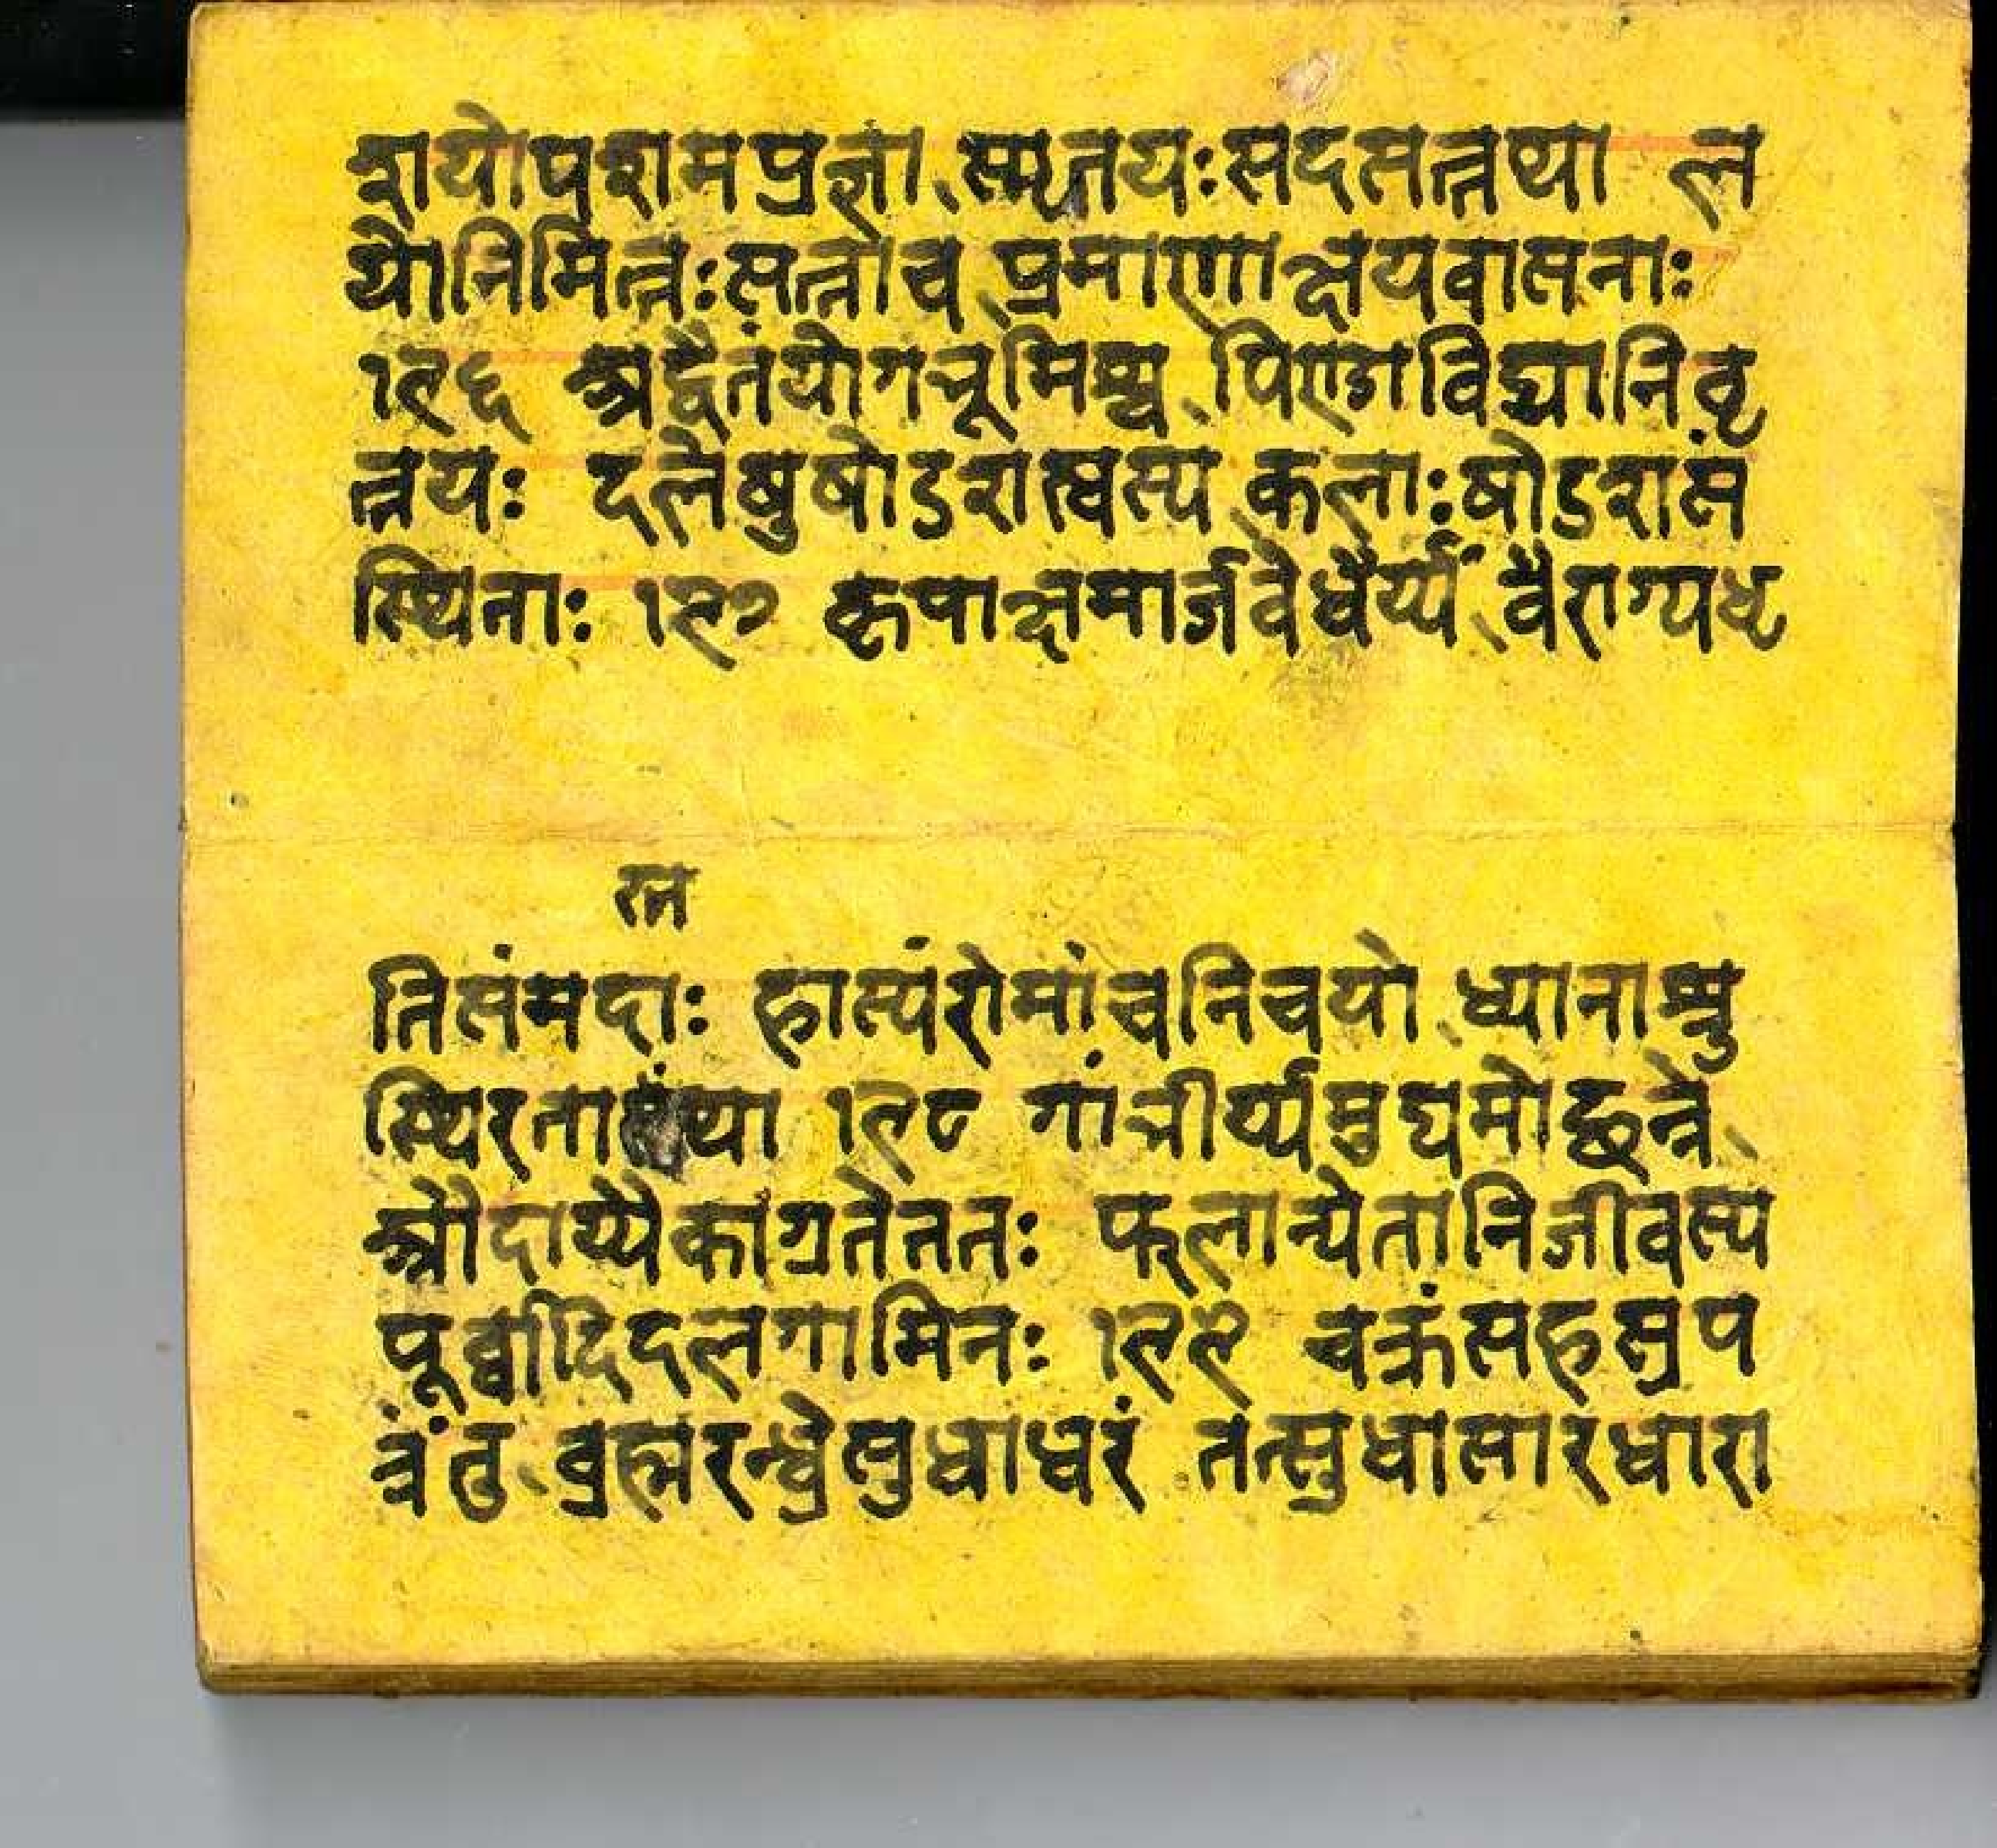 शयोपशमप्रज्ञा स्मृतयःसदसत्तथा ल
यौनिमित्तःसत्ताच प्रमाणाक्षयवासनाः
१२६ अद्वैतंयोगभूमिश्च पिण्डाविद्यानिवृ
त्तयः दलेषुषोडशस्वस्य कलाःषोडशसं
स्थिताः १२७ कृपाक्षमार्जवंधैर्य्यं वैराग्यधृ
रत्न
तिसंमदाः हास्यंरोमांचनिचयो ध्यानाश्रु
स्थिरतातथा १२८ गांभीर्य्यमुद्यमोछत्ते
औदार्य्यैकाग्रतेततः फलान्येतानिजीवस्य
पूर्व्वादिदलगामिनः १२९ चक्रंसहस्रप
त्रंतु ब्रह्मरन्ध्रेसुधाधरं तत्सुधासारधारा